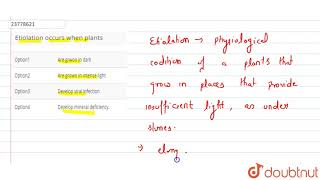 23778621
Etiolation occurs when plants
Option1 Are grown in dark
Option2 Are grown in intense light
Option3 Develop viral infection
Option4 Develop mineral deficiency.
Etiolation → physiological
condition of a plants that
grow in places that provide
insufficient light, as under
stones.
→ elong.
doubtnut